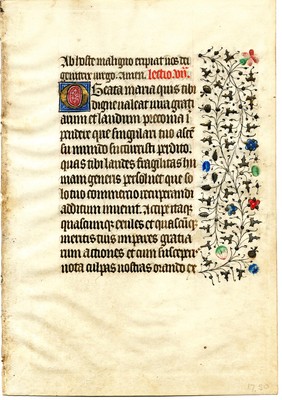 Ab hoste maligno eripiat nos dei
genitrix virgo. Amen. lectio. vii.
O Beata maria quis tibi
digne valeat iura grati
arum et laudum preconia i
pendere que singulari tuo ascē
su mundo succuristi perdito.
quas tibi laudes fragilitas hu
mani generis persoluet que so
lo tuo commertio recuperandi
aditum inuenit. Accipe itaqꝫ
quascumqꝫ exiles et quascūqꝫ
meritis tuis impares gratia
rum actiones et cum susceperis
vota culpas nostras orando ex